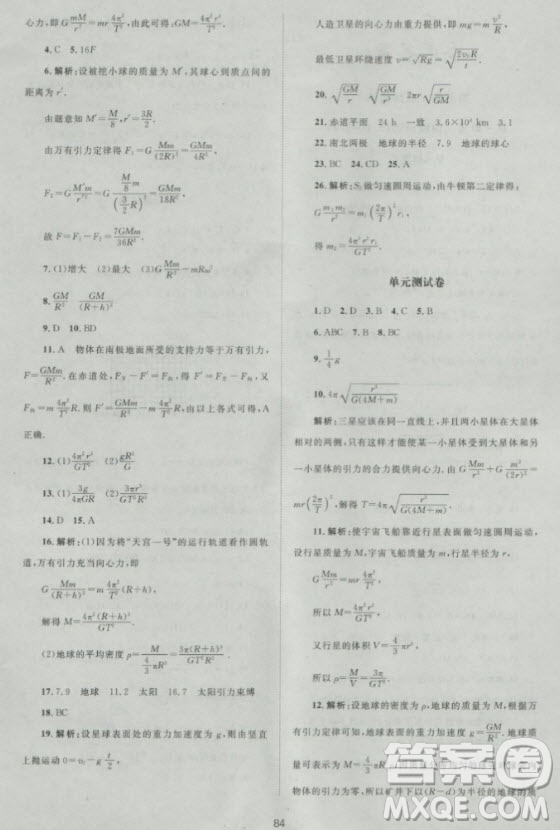 心力,即 G Mm/r² = m 4π²r/T²,由此可得:GM = 4π²r³/T².
4. C  5. 16F
6. 解析:设被挖小球的质量为 M′,其球心到质点间的
距离为 r′.
由题意知 M′ = M/8, r′ = 3R/2.
由万有引力定律得 F₁ = G Mm/(2R)² = GMm/4R²,
F₂ = G M′m/r′² = G (M/8)m/(3/2 R)² = GMm/18R²,
故 F₃ = F₁ − F₂ = 7GMm/36R².
7. (1)增大  (2)最大  (3) GMm/R² − mRω²
8. GM/R²  GM/(R+h)²
9. D  10. BD
11. A  物体在南极地面所受的支持力等于万有引力,
F = GMm/R².在赤道处,F万 − F′ = F向,所以 F′ = F万 − F向,
F向 = m 4π²/T² R.则 F − F′ = F向 = m 4π²/T² R,由以上各式可得,A
正确.
12. (1) 4π²r³/GT²  (2) gR²/G
13. (1) 3g/4πGR  (2) 3πr³/GT²R³
14. C  15. A
16. 解析:(1)因为将“天宫一号”的运行轨道看作圆轨
道,万有引力充当向心力,即
G Mm/(R+h)² = m 4π²/T² (R+h),
解得 M = 4π²(R+h)³/GT².
(2)地球的平均密度 ρ = M/(4/3 πR³) = 3π(R+h)³/GT²R³.
17. 7.9  地球  11.2  太阳  16.7  太阳引力束缚
18. BC
19. 解析:设星球表面处的重力加速度为 g,则由竖直
上抛运动 0 = v₀ − g t/2,
人造卫星的向心力由重力提供,即 mg = m v²/R
最低卫星环绕速度 v = √(Rg) = √(2v₀R/t).
20. √(GM/r)  √(GM/r³)  2πr√(r/GM)
21. 赤道平面  24 h  一致  3.6×10⁴ km  3.1
22. 南北两极  地球的半径  7.9  地球的球心
23. BC  24. CD  25. A
26. 解析:S₁ 做匀速圆周运动,由牛顿第二定律得:
G m₁m₂/r² = m₁(2π/T)² r₁,
得 m₂ = 4π²r²r₁/GT².
单元测试卷
1. D  2. D  3. B  4. C  5. B
6. C  7. AD  8. BC
9. 1/4 g
10. 4π√(r³/G(4M+m))
解析:三星应该在同一直线上,并且两小星体在大星体
相对的两侧,只有这样才能使某一小星体受到大星体和另
一小星体的引力的合力提供向心力.由 G Mm/r² + G m²/(2r)² =
mr(2π/T)²,解得 T = 4π√(r³/G(4M+m)).
11. 解析:使宇宙飞船靠近行星表面做匀速圆周运动,
设行星质量为 M,宇宙飞船质量为 m,行星半径为 r,
G Mm/r² = mr 4π²/T²,
所以 M = 4π²r³/GT².
又行星的体积 V = 4/3 πr³,
所以 ρ = M/V = 3π/GT².
12. 解析:设地球的密度为 ρ,地球的质量为 M,根据万
有引力定律可知,地球表面的重力加速度 g = GM/R².地球质
量可表示为 M = 4/3 πR³ρ
物体的引力为零,所以矿井下以(R−d)为半径的地球的质
84
答案圈